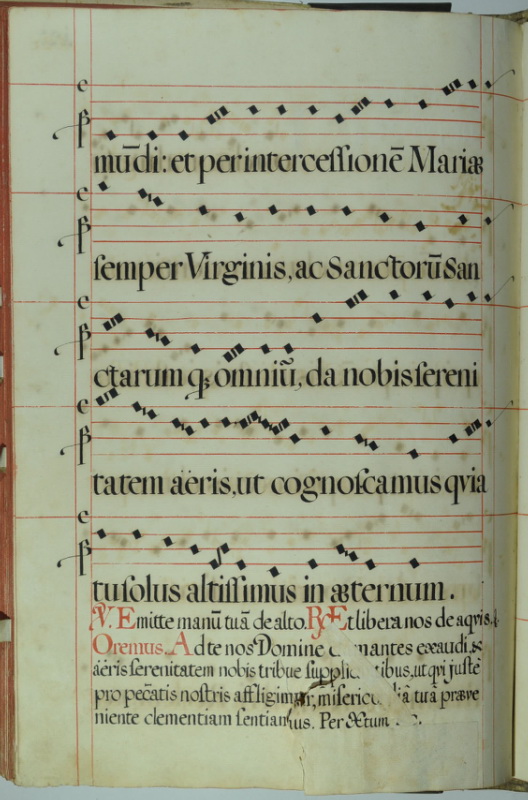 mūdi: et per intercessionē Mariæ
semper Virginis, ac Sanctorū San
ctarum q; omniū, da nobis sereni
tatem aëris, ut cognoscamus qvia
tu solus altissimus in æternum.
℣. Emitte manū tuā de alto. ℟. Et libera nos de aqvis.
Oremus. Ad te nos Domine exaudi, &
aëris serenitatem nobis tribue ut qvi justè
pro peccatis nostris affligimur, tuā præve
niente clementiam sentiamus. Per